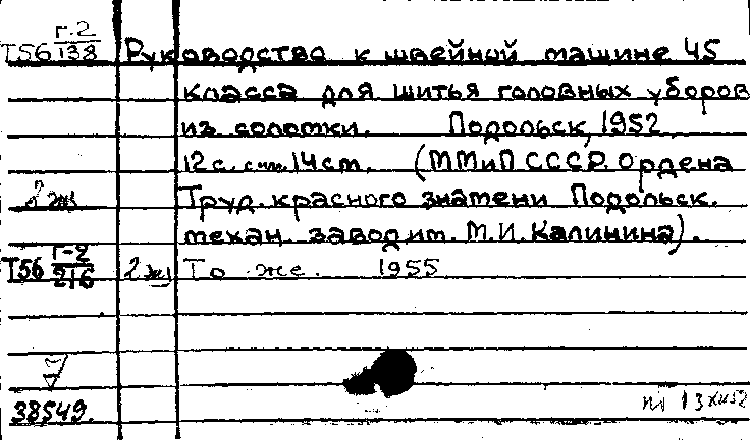 Т56 г.2/138 Руководство к швейной машине 45
класса для шитья головных уборов
из соломки. Подольск, 1952.
12 с. с илл. 14 см. (ММиП СССР. Ордена
2 эк Труд. красного знамени Подольск.
механ. завод им. М.И. Калинина).
Т56 г-2/216 2 эк То же. 1955
38549.
13 XII 52